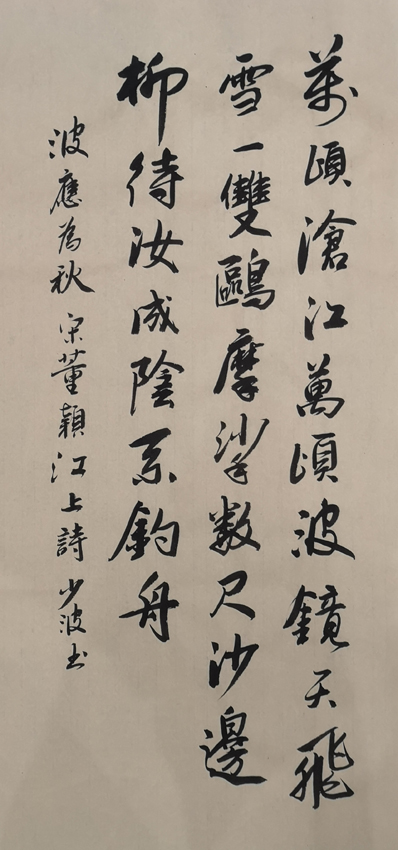 萬頃滄江萬頃波鏡天飛
雪一雙鷗摩挲數尺沙邊
柳待汝成陰系釣舟
波應為秋 宋董穎江上詩 少波書